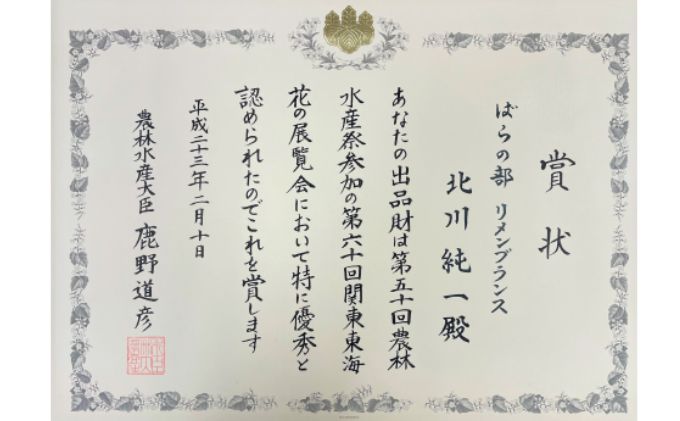 賞状
ばらの部 リメンブランス
北川純一殿
あなたの出品財は第五十回農林
水産祭参加の第六十回関東東海
花の展覧会において特に優秀と
認められたのでこれを賞します
平成二十三年二月十日
農林水産大臣 鹿野道彦